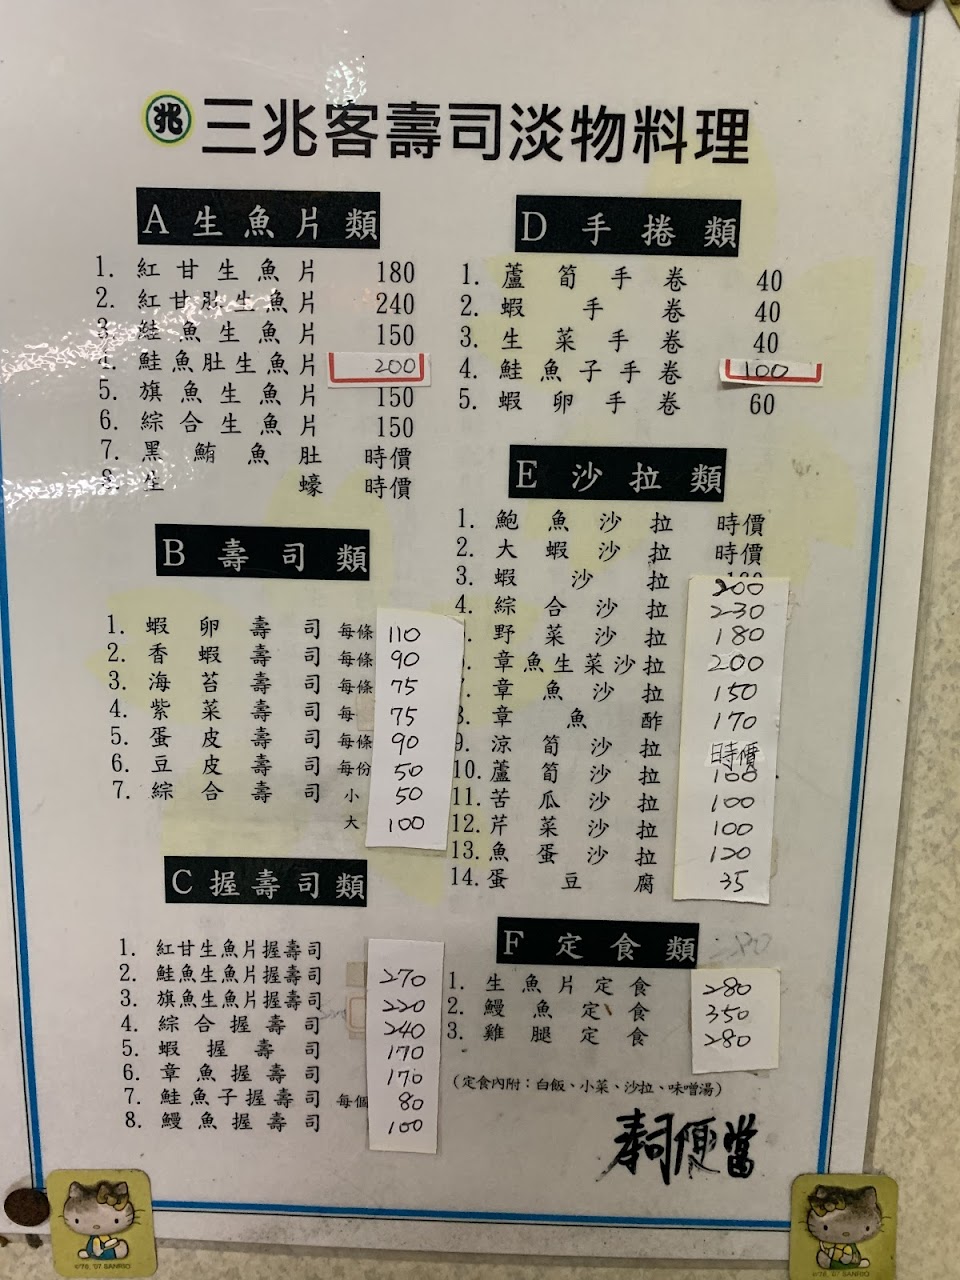 兆 三兆客壽司淡物料理
A 生魚片類
1. 紅甘生魚片 180
2. 紅甘肚生魚片 240
3. 鮭魚生魚片 150
4. 鮭魚肚生魚片 200
5. 旗魚生魚片 150
6. 綜合生魚片 150
7. 黑鮪魚肚 時價
8. 生蠔 時價
B 壽司類
1. 蝦卵壽司 每條 110
2. 香蝦壽司 每條 90
3. 海苔壽司 每條 75
4. 紫菜壽司 每 75
5. 蛋皮壽司 每條 90
6. 豆皮壽司 每份 50
7. 綜合壽司 小 50
大 100
C 握壽司類
1. 紅甘生魚片握壽司
2. 鮭魚生魚片握壽司 270
3. 旗魚生魚片握壽司 220
4. 綜合握壽司 240
5. 蝦握壽司 170
6. 章魚握壽司 170
7. 鮭魚子握壽司 每個 80
8. 鰻魚握壽司 100
D 手捲類
1. 蘆筍手卷 40
2. 蝦手卷 40
3. 生菜手卷 40
4. 鮭魚子手卷 100
5. 蝦卵手卷 60
E 沙拉類
1. 鮑魚沙拉 時價
2. 大蝦沙拉 時價
3. 蝦沙拉 200
4. 綜合沙拉 230
野菜沙拉 180
章魚生菜沙拉 200
7. 章魚沙拉 150
8. 章魚酢 170
9. 涼筍沙拉 時價
10. 蘆筍沙拉 100
11. 苦瓜沙拉 100
12. 芹菜沙拉 100
13. 魚蛋沙拉 120
14. 蛋豆腐 35
F 定食類
1. 生魚片定食 280
2. 鰻魚定食 350
3. 雞腿定食 280
(定食內附：白飯、小菜、沙拉、味噌湯)
壽司便當
©'76, '07 SANRIO
©'76, '07 SANRIO